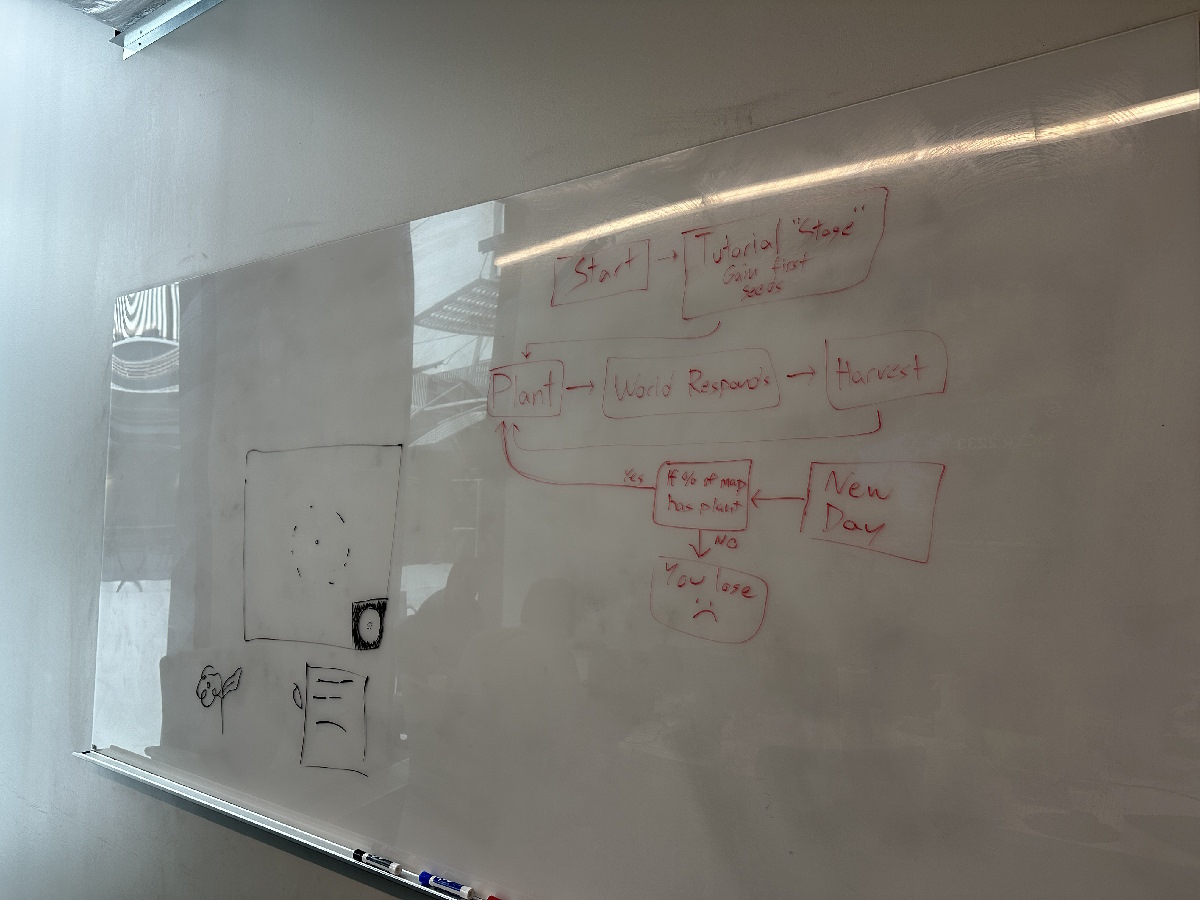 Start
Tutorial "Stage"
Gain first
seeds
Plant
World Responds
Harvest
Yes
If % of map
has plant
New
Day
NO
You lose